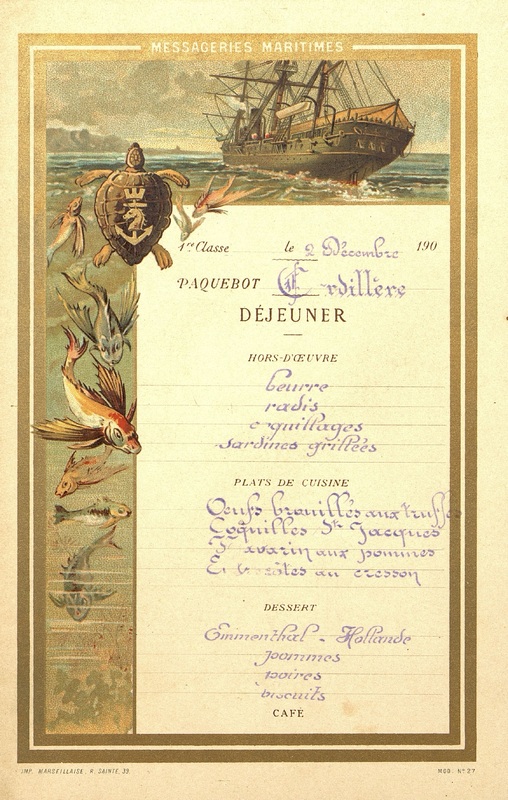 MESSAGERIES MARITIMES
1re Classe le 2 Décembre 190
PAQUEBOT Cordillère
DÉJEUNER
HORS-D'ŒUVRE
beurre
radis
coquillages
sardines grillées
PLATS DE CUISINE
Oeufs brouillés aux truffes
Coquilles St Jacques
Navarin aux pommes
Entrecôtes au cresson
DESSERT
Emmenthal - Hollande
pommes
poires
biscuits
CAFÉ
IMP. MARSEILLAISE, R. SAINTE, 39. MOD. No 27